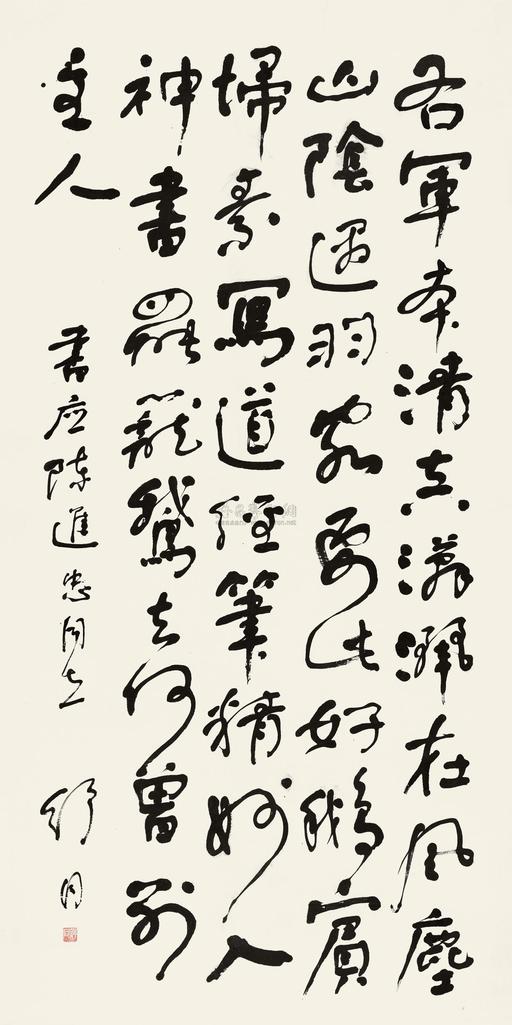 右軍本清真瀟灑在風塵
山陰遇羽客要此好鵝賓
掃素寫道經筆精妙入
神書罷籠鵝去何曾別
主人
書应陳進忠同志
舒同